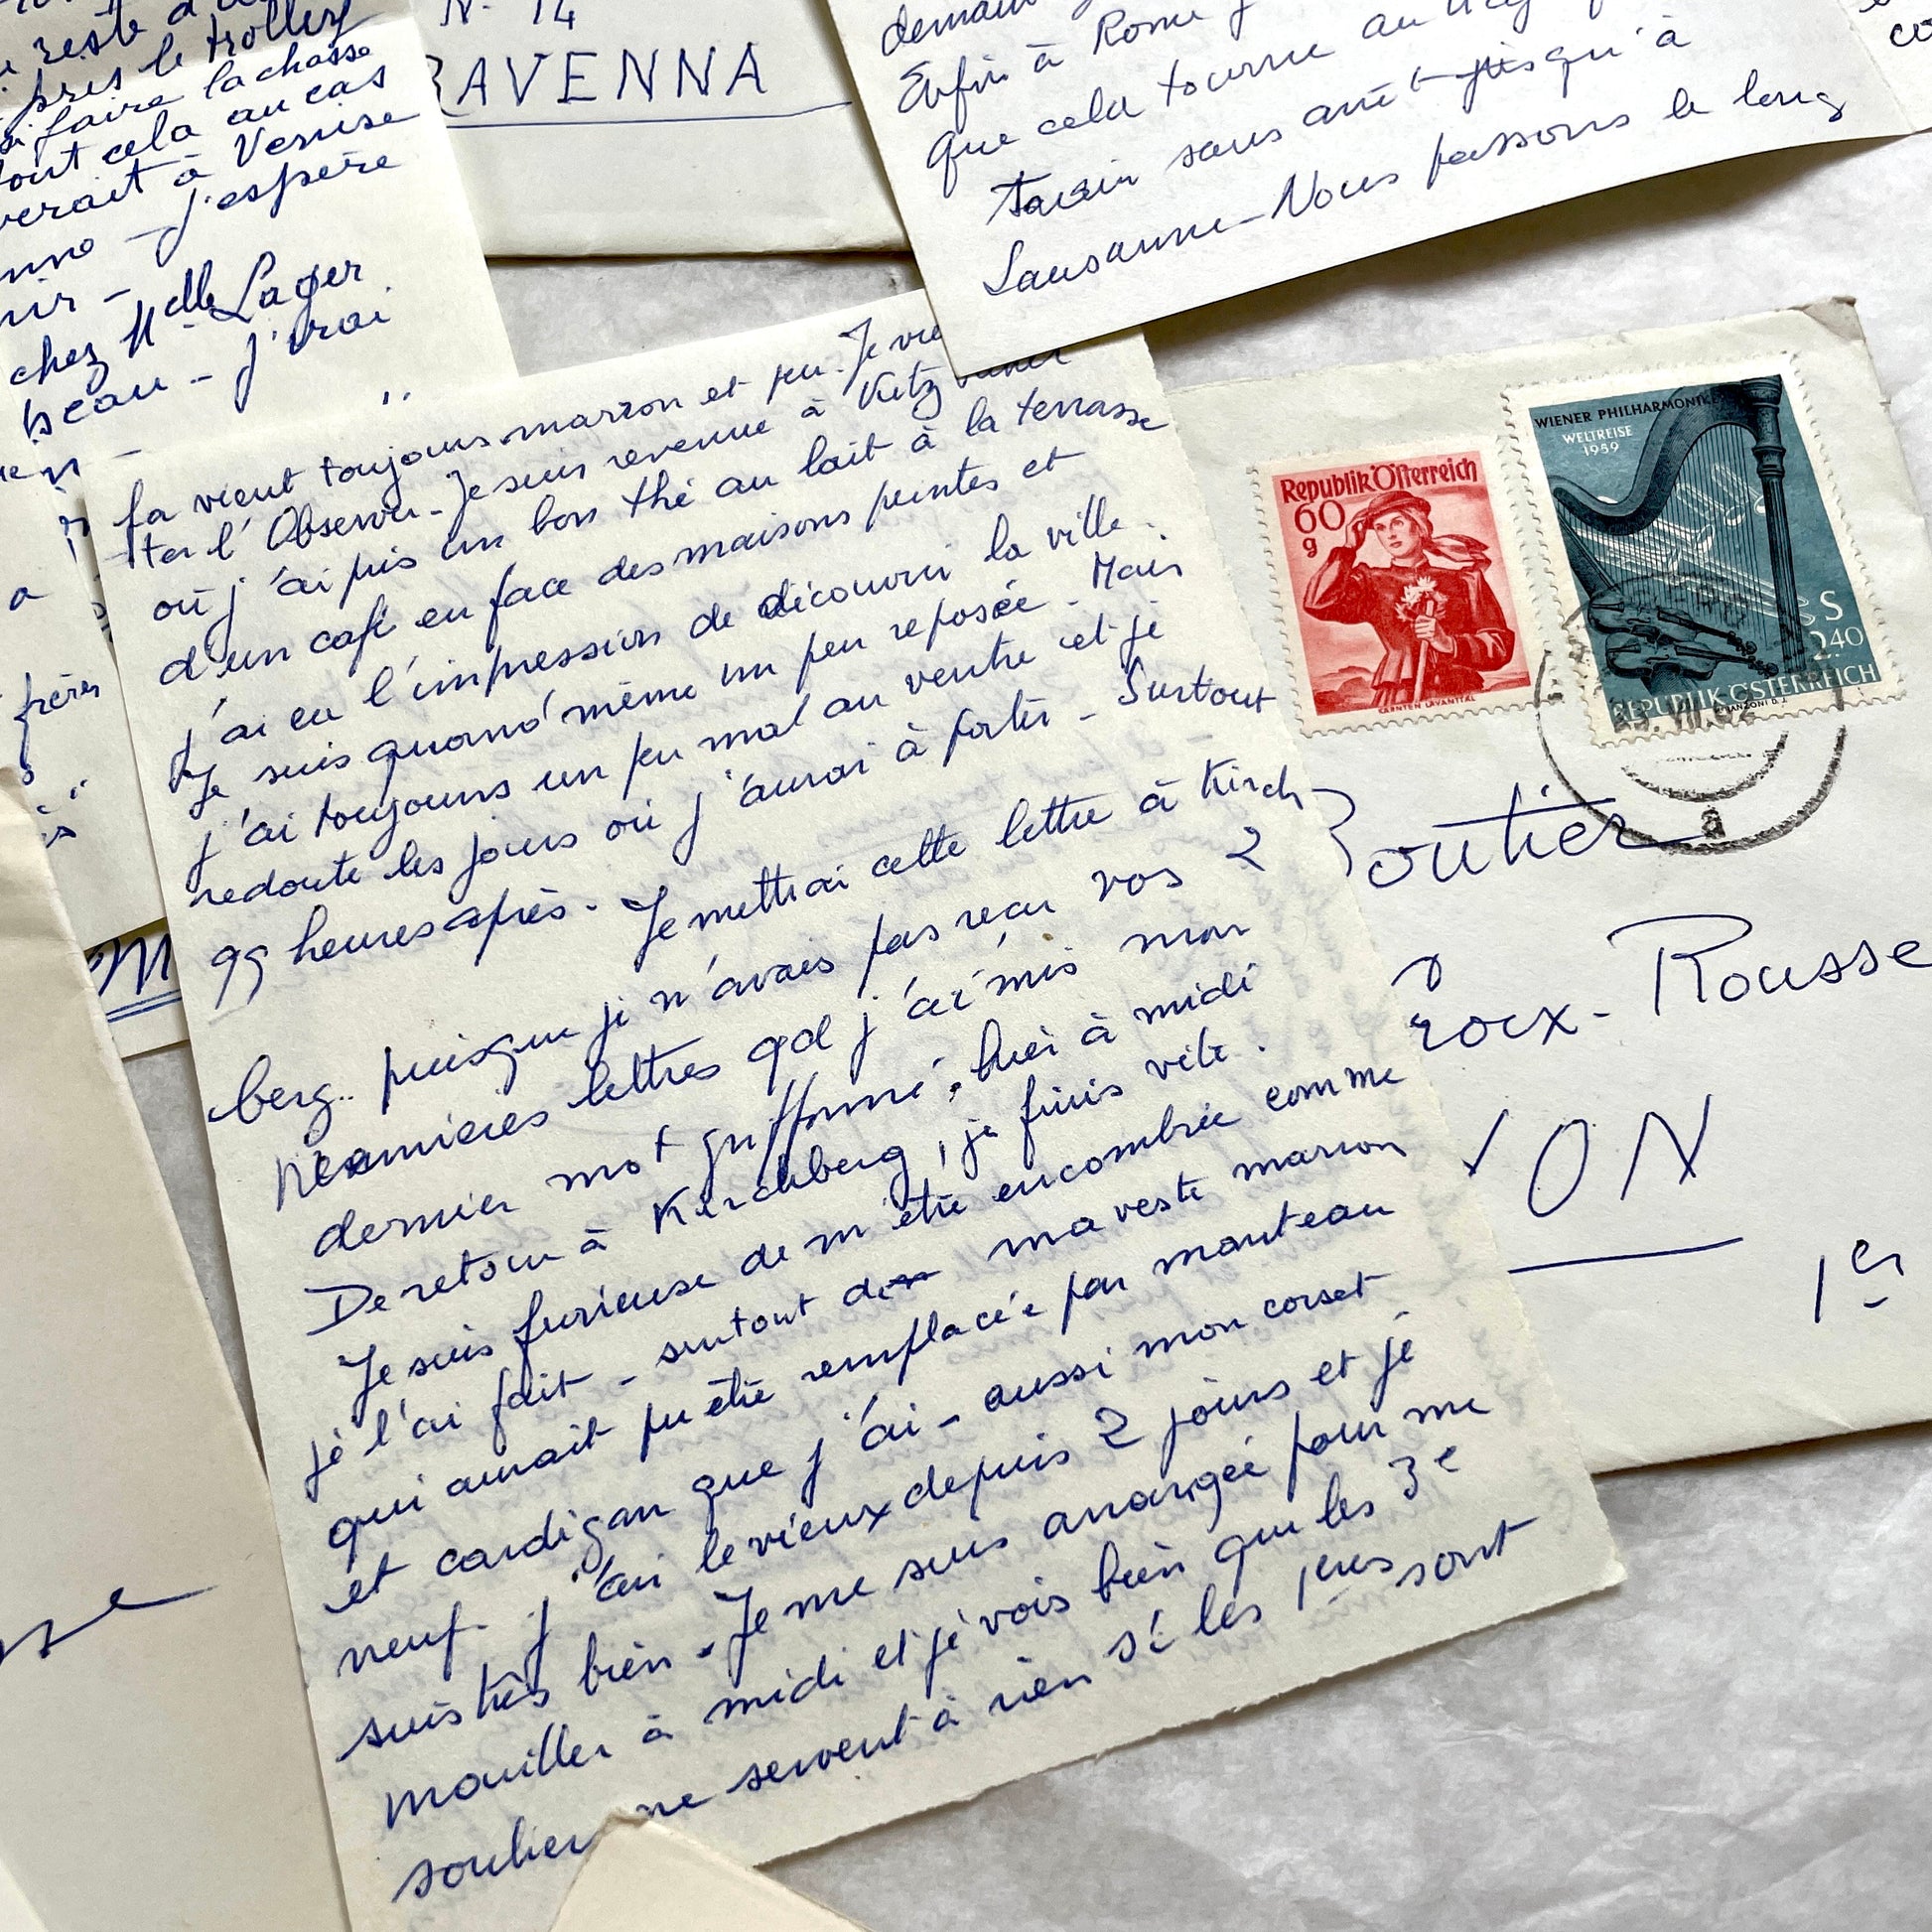 reste
pris le trolley
faire la chasse
tout cela au cas
à Venise
J'espère
chez Melle Lager
beau - j'irai
frères
N° 14
RAVENNA
demain
Enfin à Rome
que cela tourne au
sans arrêt jusqu'à
Lausanne - Nous passons le long
ça vient toujours marron et peu. Je
ter l'Observer - Je suis revenue à Kitz
où j'ai pris un bon thé au lait à la terrasse
d'un café en face des maisons peintes et
j'ai eu l'impression de découvrir la ville.
Je suis quand même un peu reposée - Mais
j'ai toujours un peu mal au ventre et je
redoute les jours où j'aurai à porter - Surtout
99 heures après - Je mettrai cette lettre à Kirch-
berg.. puisque je n'avais pas reçu vos 2
premières lettres qd j'ai mis mon
dernier mot griffonné, hier à midi
De retour à Kirchberg, je finis vite.
Je suis furieuse de m'être encombrée comme
je l'ai fait - surtout de ma veste marron
qui aurait pu être remplacée par manteau
et cardigan que j'ai - aussi mon corset
neuf. j'ai le vieux depuis 2 jours et je
suis très bien - Je me suis arrangée pour me
mouiller à midi et je vois bien que les 3e
soulier ne servent à rien si les 1ers sont
Republik Österreich
60
g
KÄRNTEN LAVANTTAL
WIENER PHILHARMONIKE
WELTREISE
1959
S
2.40
REPUBLIK ÖSTERREICH
a
outier
roix-Rousse
ON
1er